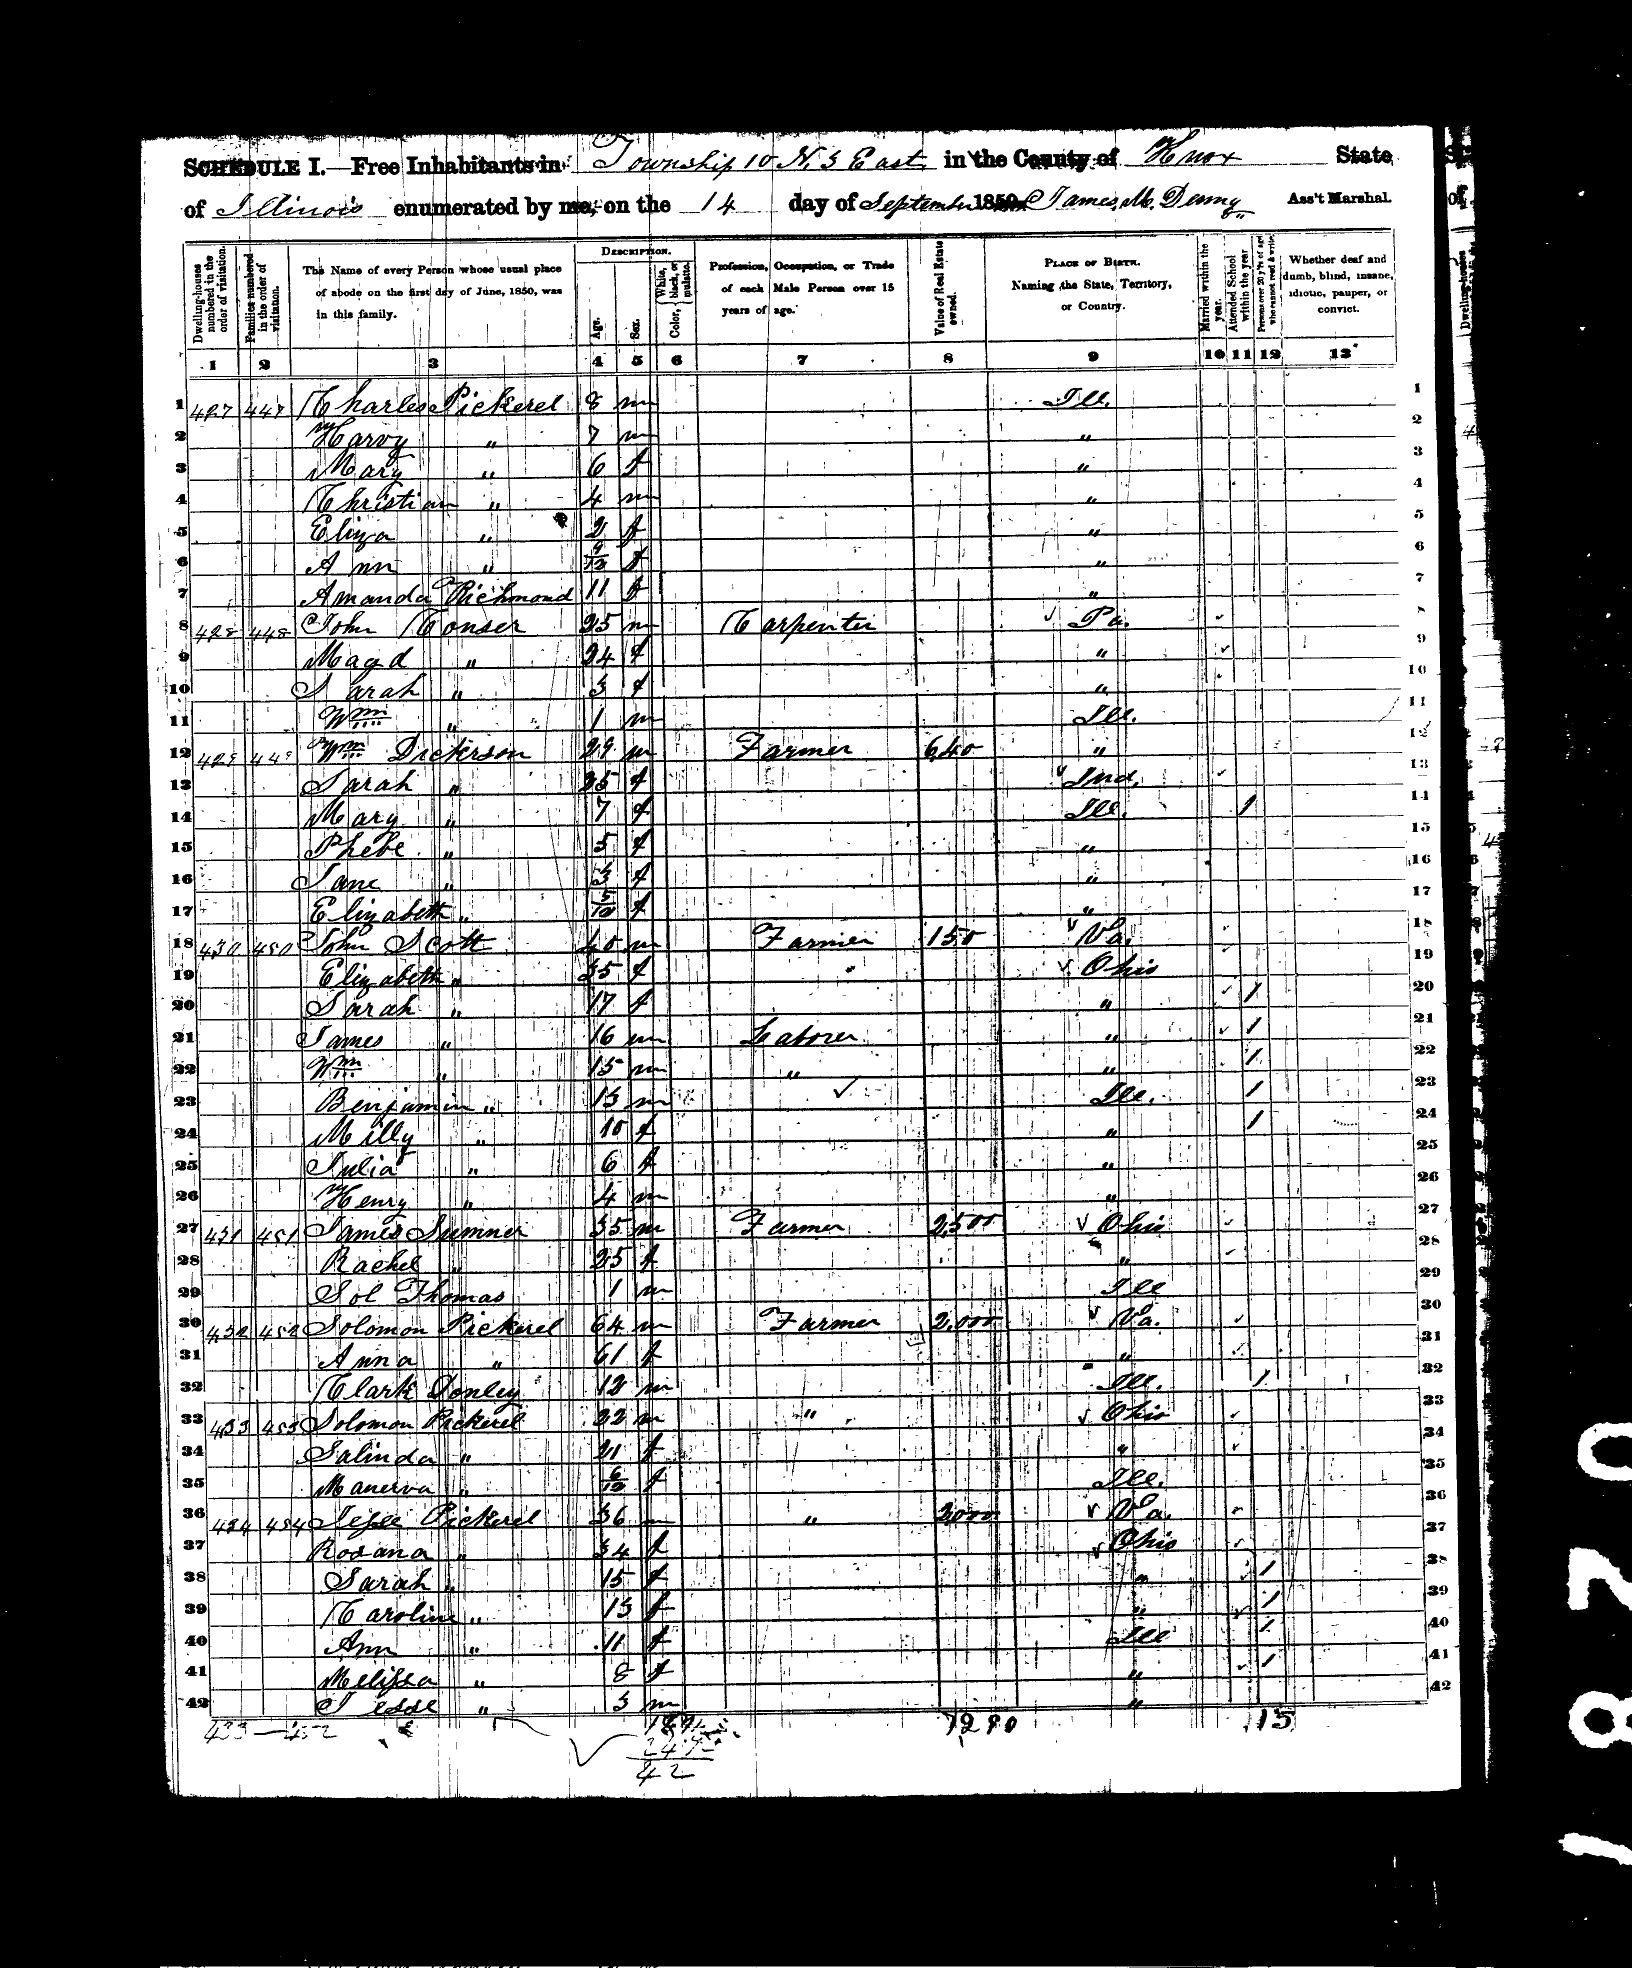 SCHEDULE I. Free Inhabitants in Township 10 N. 3 East in the County of Knox State
of Illinois enumerated by me, on the 14 day of September 1850. James M. Demy Ass't Marshal.
Dwelling-houses numbered in the order of visitation.
Families numbered in the order of visitation.
The Name of every Person whose usual place of abode on the first day of June, 1850, was in this family.
DESCRIPTION.
Age.
Sex.
Color, White, black, or mulatto.
Profession, Occupation, or Trade of each Male Person over 15 years of age.
Value of Real Estate owned.
PLACE OF BIRTH.
Naming the State, Territory, or Country.
Married within the year.
Attended School within the year
Persons over 20 y'rs of age who cannot read & write.
Whether deaf and dumb, blind, insane, idiotic, pauper, or convict.
1 2 3 4 5 6 7 8 9 10 11 12 13
1 427 447 Charles Pickerel 8 m Ill. 1
2 Harvy " 7 m " 2
3 Mary " 6 f " 3
4 Christian " 4 m " 4
5 Eliza " 2 f " 5
6 Ann " 9/12 f " 6
7 Amanda Richmond 11 f " 7
8 428 448 John Conser 25 m Carpenter Pa. 8
9 Magd " 24 f " 9
10 Sarah " 3 f " 10
11 Wm " 1 m Ill. 11
12 429 449 Wm Dickerson 29 m Farmer 640 " 12
13 Sarah " 25 f Ind. 13
14 Mary " 7 f Ill. / 14
15 Phebe " 5 f " 15
16 Jane " 3 f " 16
17 Elizabeth " 5/12 f " 17
18 430 450 John Scott 40 m Farmer 150 Va. 18
19 Elizabeth " 35 f Ohio 19
20 Sarah " 17 f " / 20
21 James " 16 m Laborer " / 21
22 Wm " 15 m " " / 22
23 Benjamin " 13 m Ill. / 23
24 Milly " 10 f " / 24
25 Julia " 6 f " 25
26 Henry " 4 m " 26
27 431 451 James Sumner 35 m Farmer 2,500 Ohio 27
28 Rachel " 25 f " 28
29 Sol Thomas 1 m Ill 29
30 432 452 Solomon Pickerel 64 m Farmer 2,000 Va. 30
31 Anna " 61 f " 31
32 Clark Donley 12 m Ill. / 32
33 433 453 Solomon Pickerel 22 m " Ohio 33
34 Salinda " 21 f " 34
35 Manerva " 6/12 f Ill. 35
36 434 454 Jesse Pickerel 36 m " 2000 Va. 36
37 Rosana " 34 f Ohio 37
38 Sarah " 15 f " / 38
39 Caroline " 13 f " / 39
40 Ann " 11 f Ill / 40
41 Melissa " 8 f " / 41
42 Jesse " 3 m " 42
7290 15
42
1820